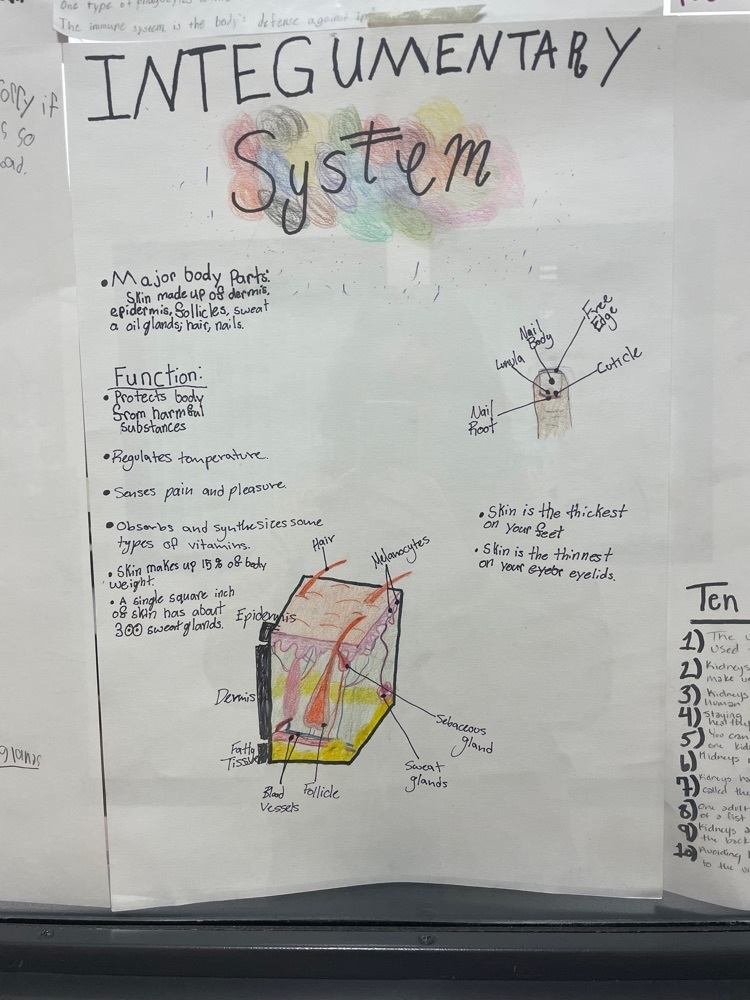 One type of
The immune system is the body's defense against
INTEGUMENTARY
System
• Major body parts:
Skin made up of dermis,
epidermis, follicles, sweat
a oil glands; hair, nails.
Function:
• Protects body
from harmful
substances
• Regulates tomperature.
• Senses pain and pleasure.
• Obsorbs and synthesices some
types of vitamins.
• Skin makes up 15% of body
weight.
• A single square inch
of skin has about
300 sweat glands.
Free
Edge
Nail
Body
Lunula
Cuticle
Nail
Root
• Skin is the thickest
on your feet
• Skin is the thinnest
on your eyelids.
Hair
Melanocytes
Epidermis
Dermis
Fatty
Tissue
Blood
Vessels
Follicle
Sweat
glands
Sebaceous
gland
if
so
glands
Ten
1) The
used
2) Kidneys
make
3) Kidneys
human
4) Staying
5) You can
one
Kidneys
7)
called the
8) One adult
of a fist
9) Kidneys
the back
10) Avoiding
to the